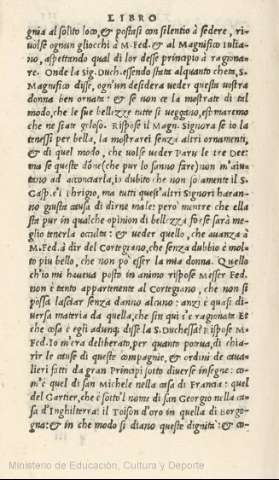 LIBRO
gnia al solito loco, & postisi con silentio à sedere, ri-
uolse ognun gliocchi à M. Fed. & al Magnifico Iulia-
no, aspettando qual di lor desse principio à ragiona-
re. Onde la Sig. Duch. essendo stata alquanto cheta, S.
Magnifico disse, ogn'un desidera ueder questa uostra
donna ben ornata: & se non ce la mostrate di tal
modo, che le sue bellezze tutte si ueggano, estimaremo
che ne siate geloso. Rispose il Mag. Signora se io la
tenessi per bella, la mostrarei senza altri ornamenti,
& di quel modo, che uolse ueder Paris le tre Dee:
ma se queste dōne (che pur lo sanno fare) non m'aiu
tano ad acconciarla, io dubito che non solamente il S.
Gasp. e'l Phrigio, ma tutti quest'altri Signori haran-
no giusta causa di dirne male: però mentre che ella
sta pur in qualche opinion di bellezza forse sarà me-
glio tenerla occulta: & ueder quello, che auanza à
M. Fed. à dir del Cortegiano, che senza dubbio è mol-
to piu bello, che non pò esser la mia donna. Quello
ch'io mi haueua posto in animo rispose Messer Fed.
non è tanto appartenente al Cortegiano, che non si
possa lasciar senza danno alcuno: anzi è quasi di-
uersa materia da quella, che sin qui s'è ragionata Et
che cosa è egli adunq; disse la S. Duchessa? Rispose M.
Fed. Io m'era deliberato, per quanto potea, di chiari-
re le cause di queste compagnie, & ordini de caua-
lieri fatti da gran Principi sotto diuerse insegne: co-
m'è quel di san Michele nella casa di Francia: quel
del Gartier, che è sotto'l nome di san Georgio nella ca-
sa d'Inghilterra: il Toison d'oro in quella di Borgo-
gna: & in che modo si diano queste dignità: & co-
Ministerio de Educación, Cultura y Deporte